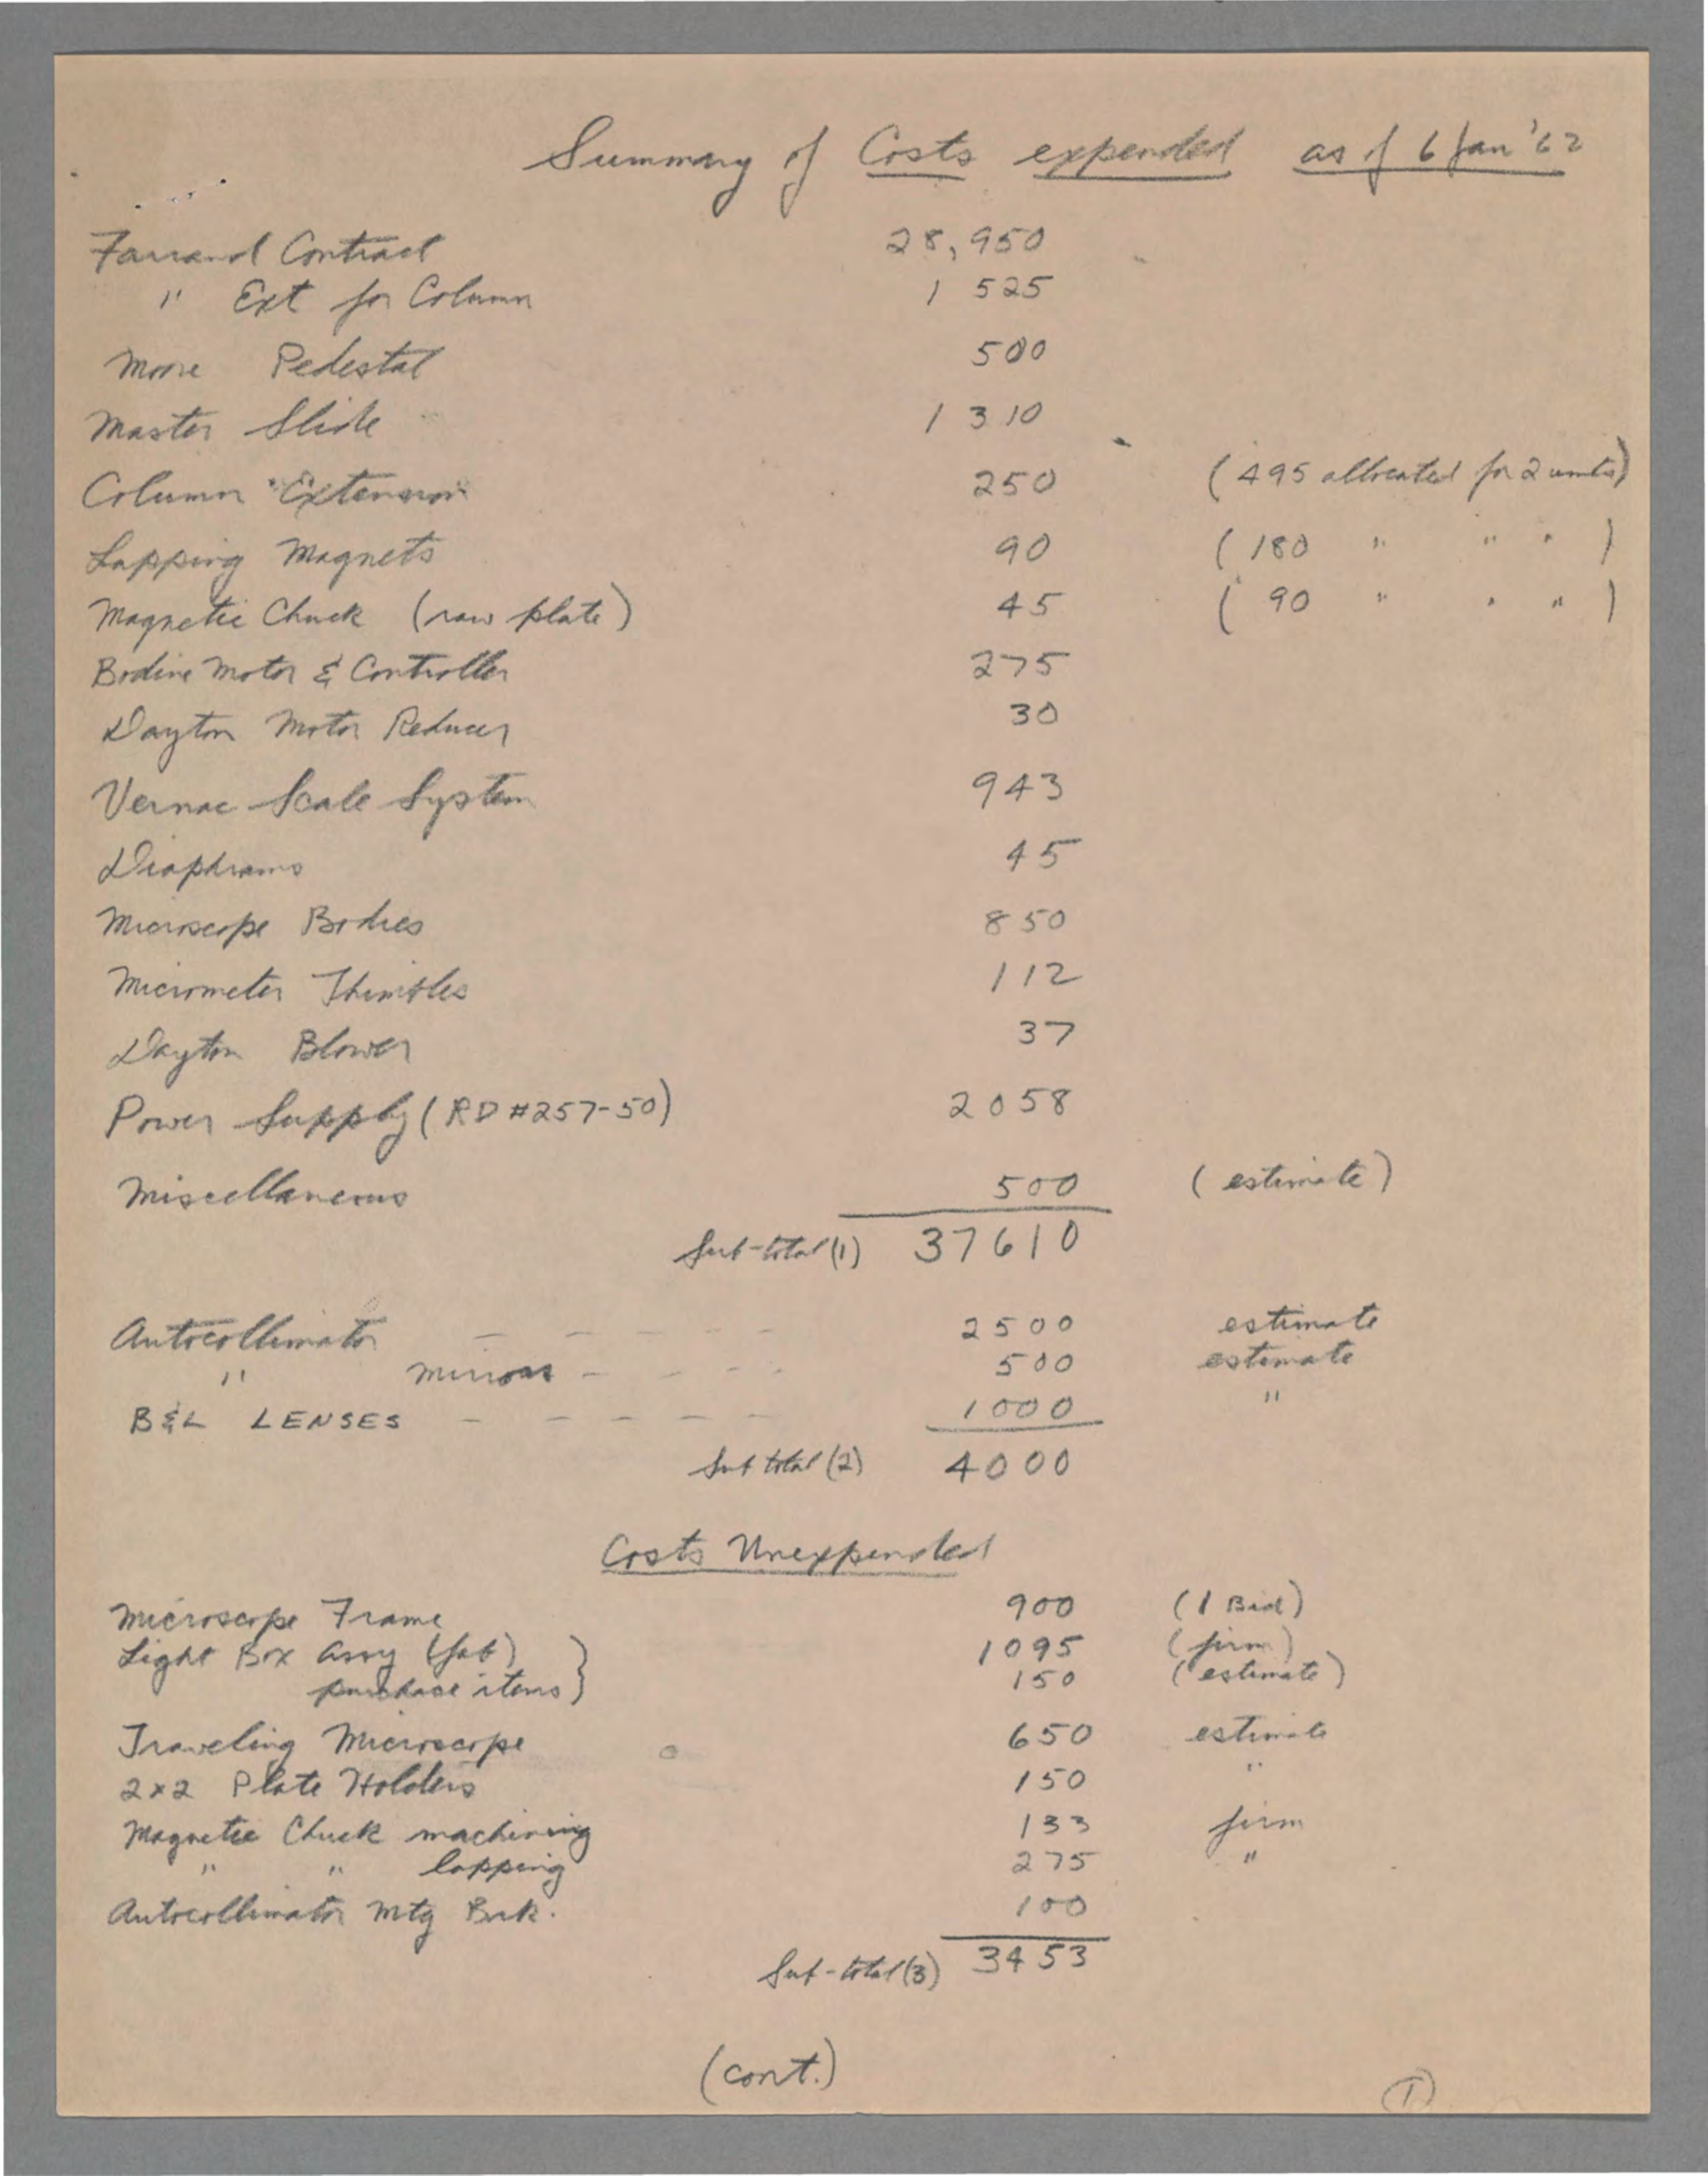 Summary of Costs expended as of 6 Jan '62
Farrand Contract 28,950
" Ext for Column 1 525
Moore Pedestal 500
Master Slide 1 310
Column Extension 250 (495 allocated for 2 units)
Lapping Magnets 90 (180 " " " )
Magnetic Chuck (raw plate) 45 ( 90 " " " )
Bodine Motor & Controller 275
Dayton Motor Reducer 30
Vernac Scale System 943
Diaphrams 45
Microscope Bodies 850
Micrometer Thimbles 112
Dayton Blower 37
Power Supply (RD #257-50) 2058
Miscellaneous 500 (estimate)
Sub-total (1) 37610
Autocollimator - - - - - 2500 estimate
" mirrors - - - - 500 estimate
B&L LENSES - - - - - 1000 "
Sub total (2) 4000
Costs Unexpended
Microscope Frame 900 (1 Bid)
Light Box Assy (fab) 1095 (firm)
purchase items } 150 (estimate)
Traveling Microscope 650 estimate
2x2 Plate Holders 150 "
Magnetic Chuck machining 133 firm
" " lapping 275 "
Autocollimator Mtg Brk. 100
Sub-total (3) 3453
(cont.)
1